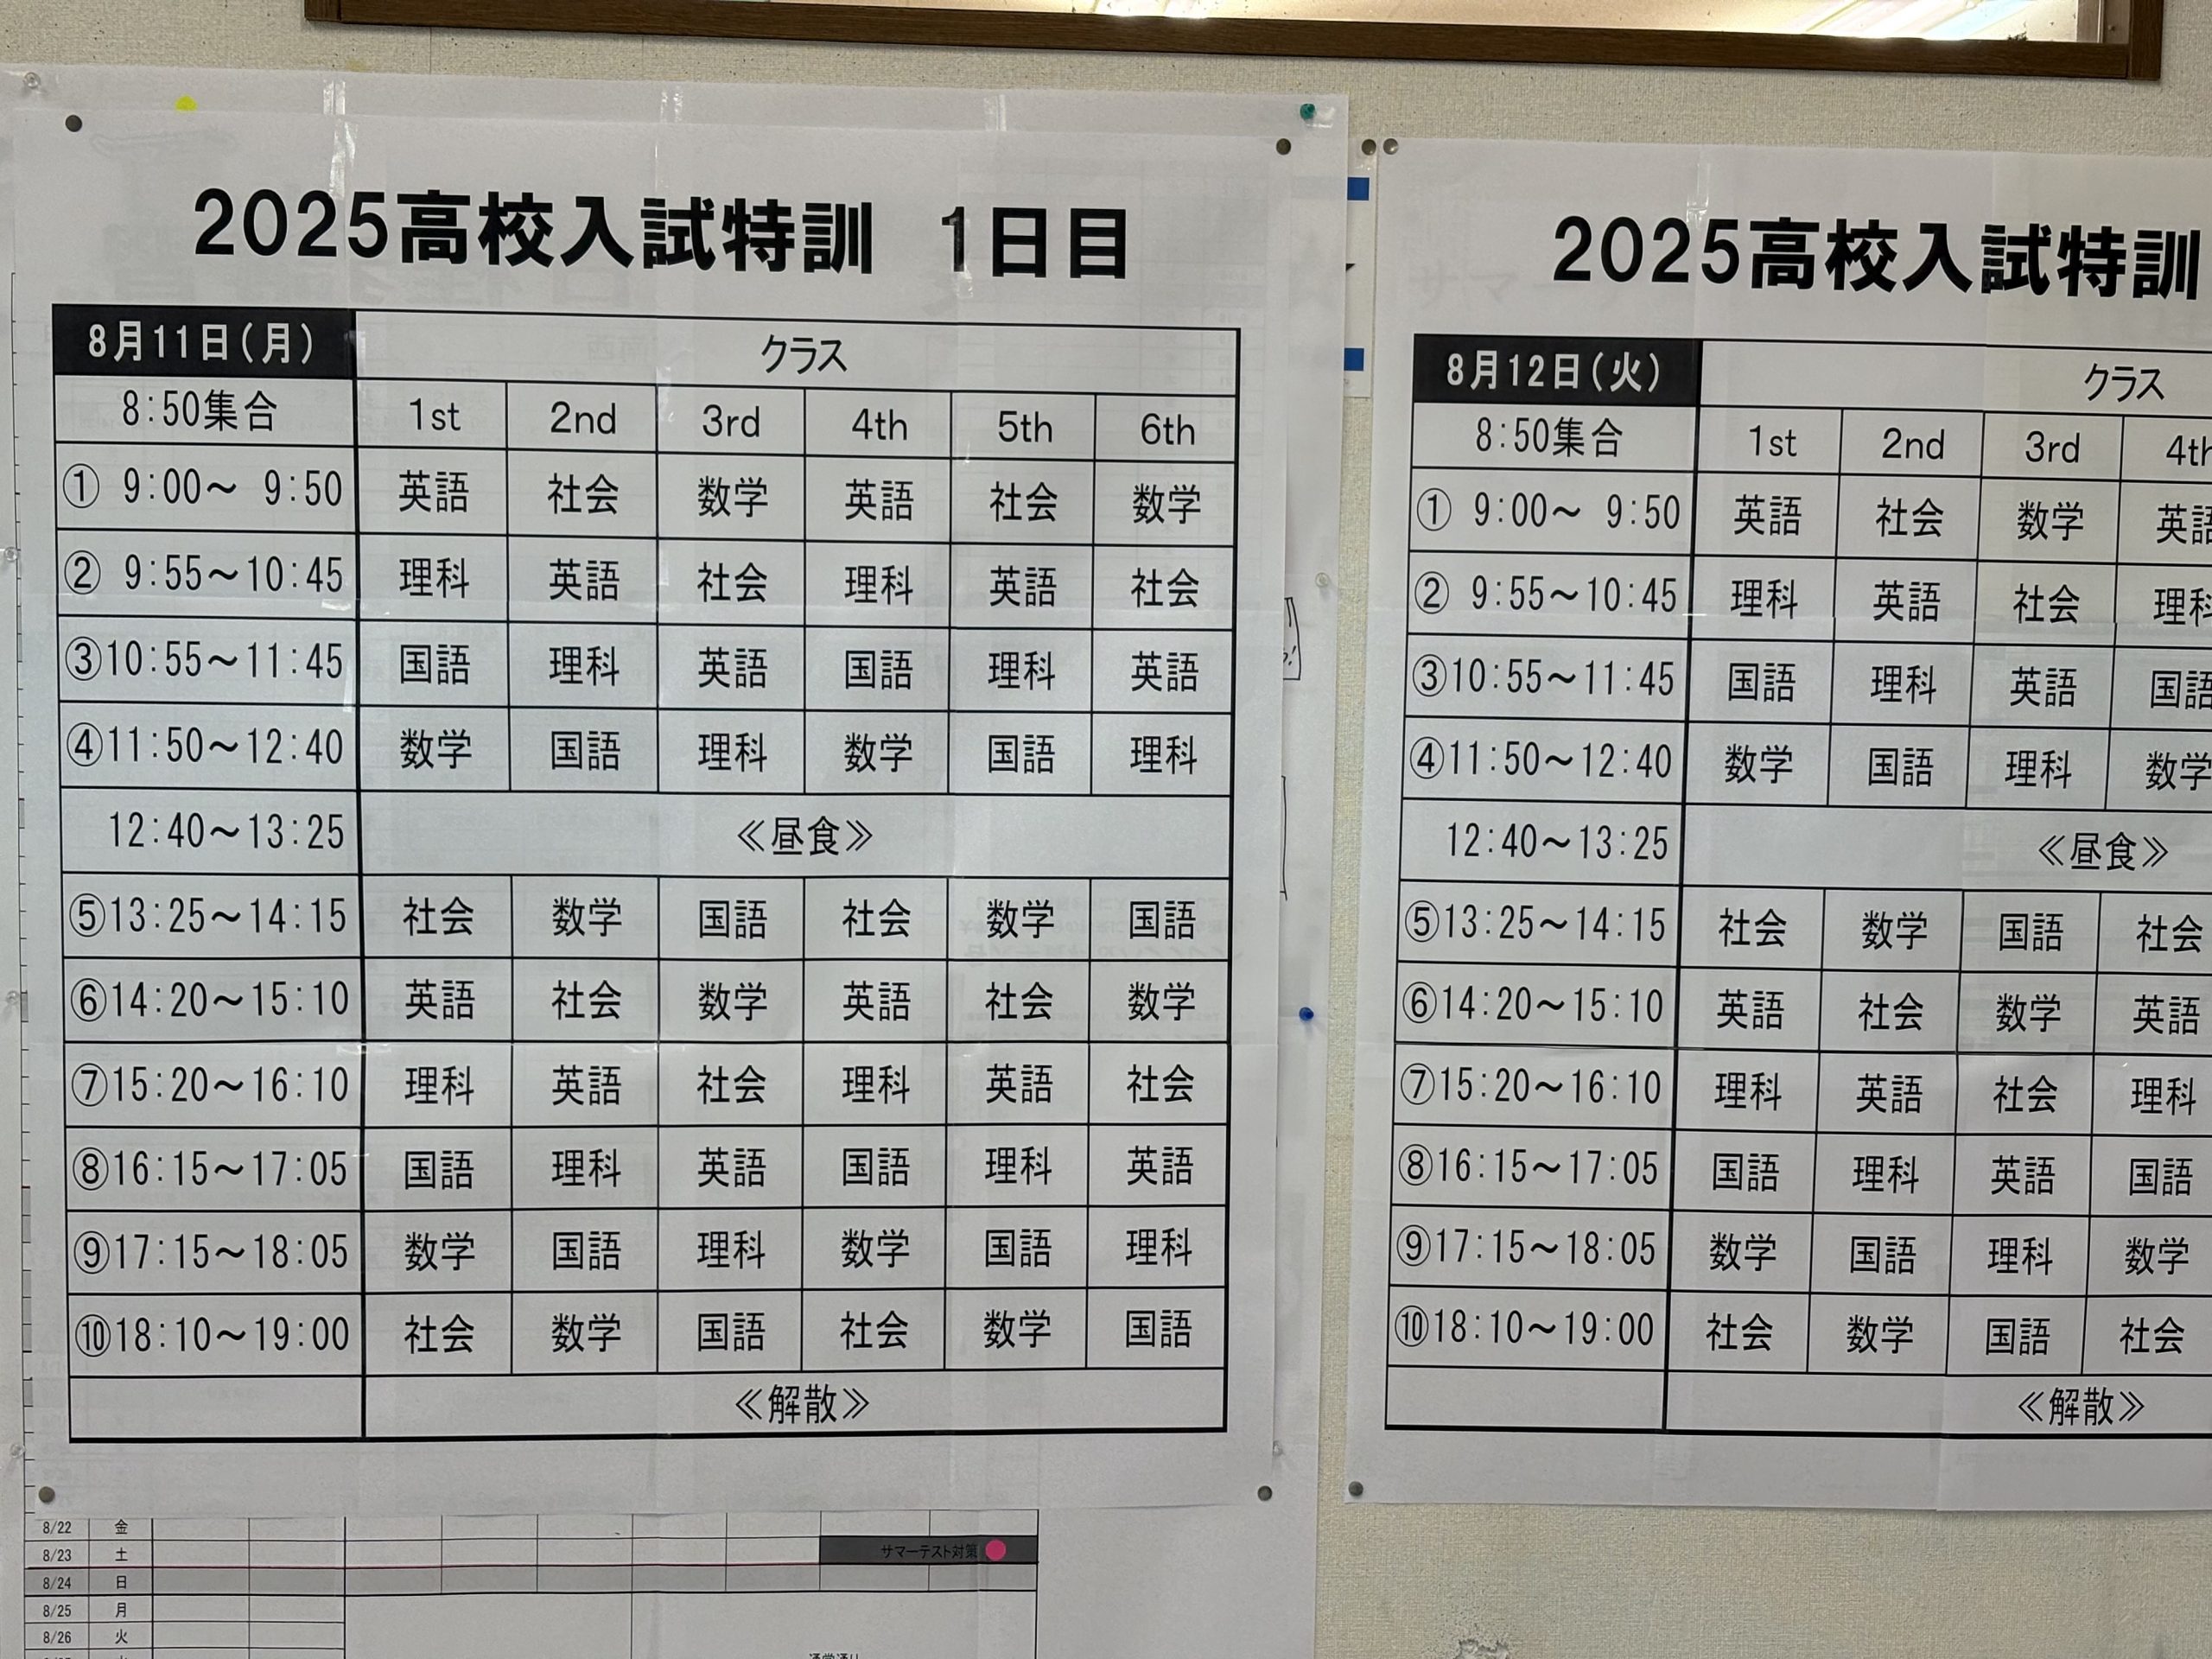 2025高校入試特訓 1日目
8月11日(月) クラス
8:50集合 1st 2nd 3rd 4th 5th 6th
① 9:00～ 9:50 英語 社会 数学 英語 社会 数学
② 9:55～10:45 理科 英語 社会 理科 英語 社会
③10:55～11:45 国語 理科 英語 国語 理科 英語
④11:50～12:40 数学 国語 理科 数学 国語 理科
12:40～13:25 ≪昼食≫
⑤13:25～14:15 社会 数学 国語 社会 数学 国語
⑥14:20～15:10 英語 社会 数学 英語 社会 数学
⑦15:20～16:10 理科 英語 社会 理科 英語 社会
⑧16:15～17:05 国語 理科 英語 国語 理科 英語
⑨17:15～18:05 数学 国語 理科 数学 国語 理科
⑩18:10～19:00 社会 数学 国語 社会 数学 国語
≪解散≫
2025高校入試特訓
8月12日(火) クラス
8:50集合 1st 2nd 3rd 4th
① 9:00～ 9:50 英語 社会 数学 英語
② 9:55～10:45 理科 英語 社会 理科
③10:55～11:45 国語 理科 英語 国語
④11:50～12:40 数学 国語 理科 数学
12:40～13:25 ≪昼食≫
⑤13:25～14:15 社会 数学 国語 社会
⑥14:20～15:10 英語 社会 数学 英語
⑦15:20～16:10 理科 英語 社会 理科
⑧16:15～17:05 国語 理科 英語 国語
⑨17:15～18:05 数学 国語 理科 数学
⑩18:10～19:00 社会 数学 国語 社会
≪解散≫
8/22 金
8/23 土 サマーテスト対策
8/24 日
8/25 月
8/26 火